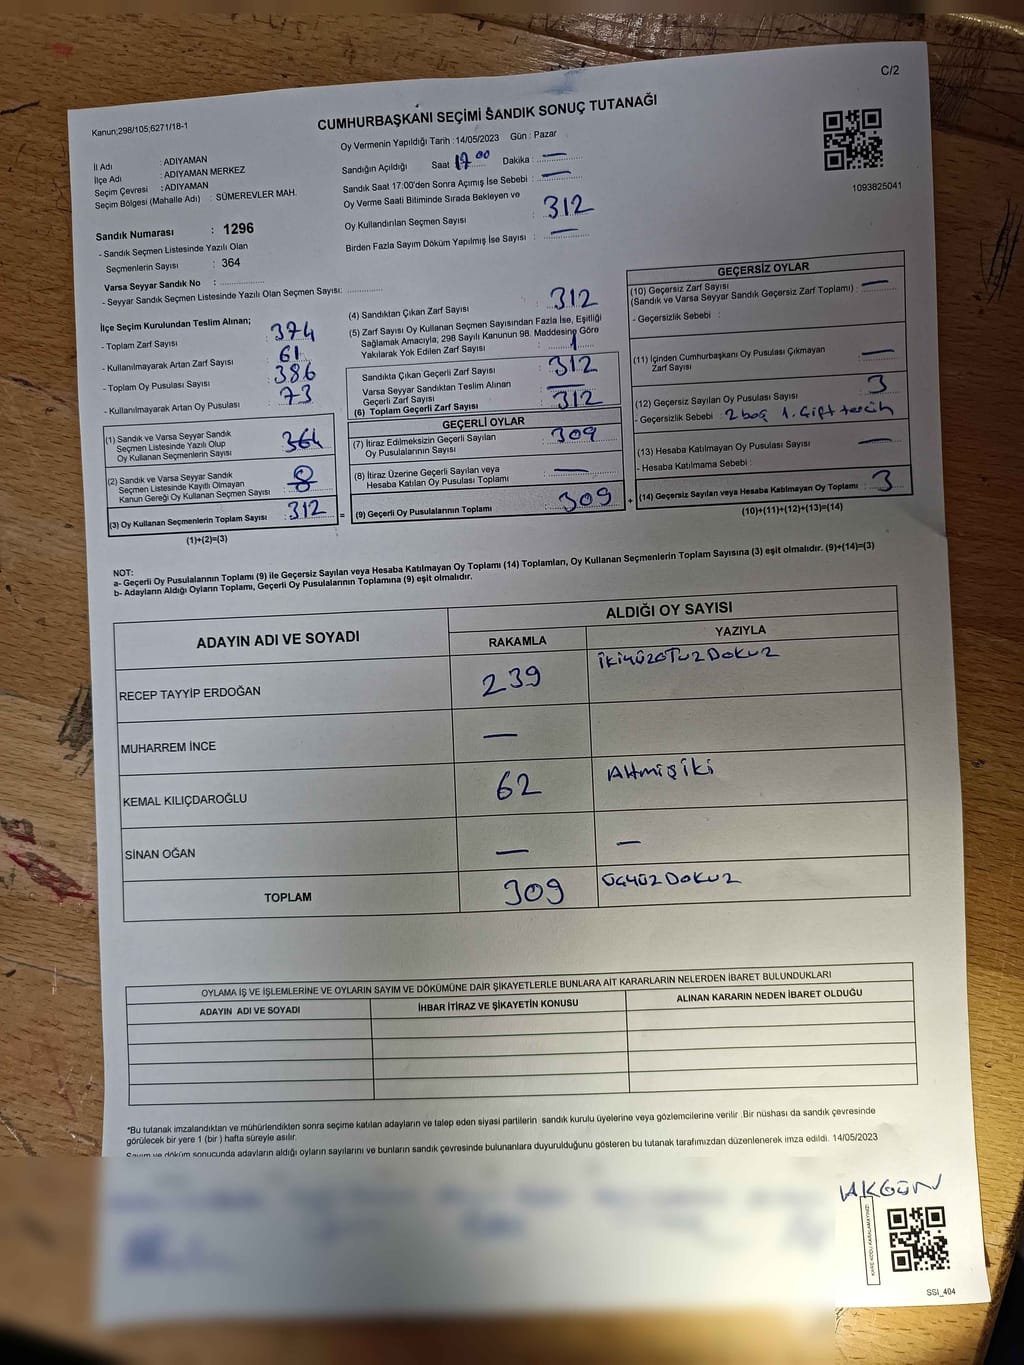 C/2
Kanun;298/105;6271/18-1
CUMHURBAŞKANI SEÇİMİ SANDIK SONUÇ TUTANAĞI
Oy Vermenin Yapıldığı Tarih :14/05/2023 Gün : Pazar
İl Adı : ADIYAMAN
İlçe Adı : ADIYAMAN MERKEZ
Seçim Çevresi : ADIYAMAN
Seçim Bölgesi (Mahalle Adı) : SÜMEREVLER MAH.
Sandığın Açıldığı Saat 17 00 Dakika : —
Sandık Saat 17:00'den Sonra Açımış İse Sebebi : —
Oy Verme Saati Bitiminde Sırada Bekleyen ve
Oy Kullandırılan Seçmen Sayısı : 312
Birden Fazla Sayım Döküm Yapılmış İse Sayısı : —
1093825041
Sandık Numarası : 1296
- Sandık Seçmen Listesinde Yazılı Olan
Seçmenlerin Sayısı : 364
Varsa Seyyar Sandık No :
- Seyyar Sandık Seçmen Listesinde Yazılı Olan Seçmen Sayısı:
İlçe Seçim Kurulundan Teslim Alınan;
- Toplam Zarf Sayısı : 374
- Kullanılmayarak Artan Zarf Sayısı : 61
- Toplam Oy Pusulası Sayısı : 386
- Kullanılmayarak Artan Oy Pusulası : 73
(1) Sandık ve Varsa Seyyar Sandık
Seçmen Listesinde Yazılı Olup
Oy Kullanan Seçmenlerin Sayısı : 364
(2) Sandık ve Varsa Seyyar Sandık
Seçmen Listesinde Kayıtlı Olmayan
Kanun Gereği Oy Kullanan Seçmen Sayısı :
(3) Oy Kullanan Seçmenlerin Toplam Sayısı : 312
(1)+(2)=(3)
(4) Sandıktan Çıkan Zarf Sayısı : 312
(5) Zarf Sayısı Oy Kullanan Seçmen Sayısından Fazla İse, Eşitliği
Sağlamak Amacıyla, 298 Sayılı Kanunun 98. Maddesine Göre
Yakılarak Yok Edilen Zarf Sayısı :
Sandıkta Çıkan Geçerli Zarf Sayısı : 312
Varsa Seyyar Sandıktan Teslim Alınan
Geçerli Zarf Sayısı : —
(6) Toplam Geçerli Zarf Sayısı : 312
GEÇERLİ OYLAR
(7) İtiraz Edilmeksizin Geçerli Sayılan
Oy Pusulalarının Sayısı : 309
(8) İtiraz Üzerine Geçerli Sayılan veya
Hesaba Katılan Oy Pusulası Toplamı : —
(9) Geçerli Oy Pusulalarının Toplamı : 309
GEÇERSİZ OYLAR
(10) Geçersiz Zarf Sayısı
(Sandık ve Varsa Seyyar Sandık Geçersiz Zarf Toplamı) : —
- Geçersizlik Sebebi :
(11) İçinden Cumhurbaşkanı Oy Pusulası Çıkmayan
Zarf Sayısı : —
(12) Geçersiz Sayılan Oy Pusulası Sayısı : 3
- Geçersizlik Sebebi : 2 boş 1. Çift tercih
(13) Hesaba Katılmayan Oy Pusulası Sayısı : —
- Hesaba Katılmama Sebebi :
(14) Geçersiz Sayılan veya Hesaba Katılmayan Oy Toplamı : 3
(10)+(11)+(12)+(13)=(14)
NOT:
a- Geçerli Oy Pusulalarının Toplamı (9) ile Geçersiz Sayılan veya Hesaba Katılmayan Oy Toplamı (14) Toplamları, Oy Kullanan Seçmenlerin Toplam Sayısına (3) eşit olmalıdır. (9)+(14)=(3)
b- Adayların Aldığı Oyların Toplamı, Geçerli Oy Pusulalarının Toplamına (9) eşit olmalıdır.
ADAYIN ADI VE SOYADI
ALDIĞI OY SAYISI
RAKAMLA YAZIYLA
RECEP TAYYİP ERDOĞAN 239 İkiyüzoTuzDokuz
MUHARREM İNCE —
KEMAL KILIÇDAROĞLU 62 Altmişiki
SİNAN OĞAN — —
TOPLAM 309 üçyüzDokuz
OYLAMA İŞ VE İŞLEMLERİNE VE OYLARIN SAYIM VE DÖKÜMÜNE DAİR ŞİKAYETLERLE BUNLARA AİT KARARLARIN NELERDEN İBARET BULUNDUKLARI
ADAYIN ADI VE SOYADI İHBAR İTİRAZ VE ŞİKAYETİN KONUSU ALINAN KARARIN NEDEN İBARET OLDUĞU
*Bu tutanak imzalandıktan ve mühürlendikten sonra seçime katılan adayların ve talep eden siyasi partilerin sandık kurulu üyelerine veya gözlemcilerine verilir .Bir nüshası da sandık çevresinde
görülecek bir yere 1 (bir ) hafta süreyle asılır.
Sayım ve döküm sonucunda adayların aldığı oyların sayılarını ve bunların sandık çevresinde bulunanlara duyurulduğunu gösteren bu tutanak tarafımızdan düzenlenerek imza edildi. 14/05/2023
AKGÜN
SSI_404